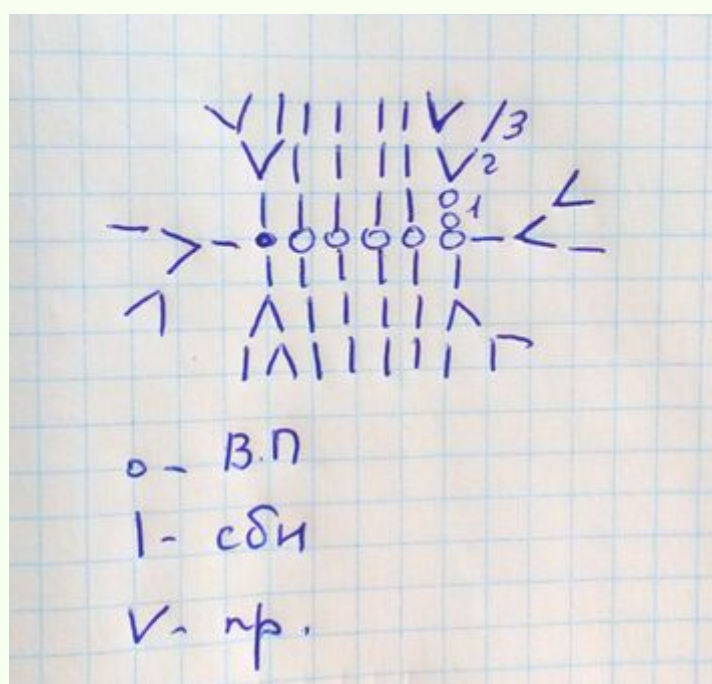 /3
2
1
o - В.П
| - сбн
V - пр.